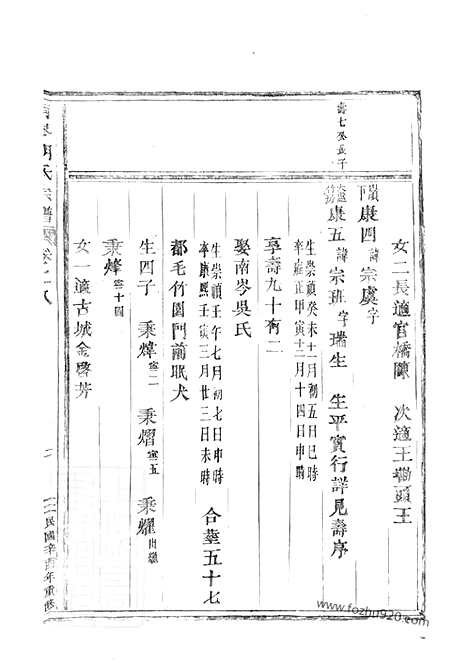 壽七癸長子
女二長適官橋陳 次適王墈頭王
康四 諱宗虞字
康五 諱宗班字瑞生 生平實行詳見壽序
生崇禎癸未十一月初五日巳時
卒雍正甲寅十二月十四日申時
享壽九十有二
娶南岑吳氏
生崇禎壬午七月初七日申時
卒康熙壬寅三月廿三日未時 合葬五十七
都毛竹園門前眠犬
生四子 秉煒 秉熠 秉耀出繼
秉烽
女一適古城金啓芳
氏宗譜
民國辛酉年重修
www.fozhu920.com